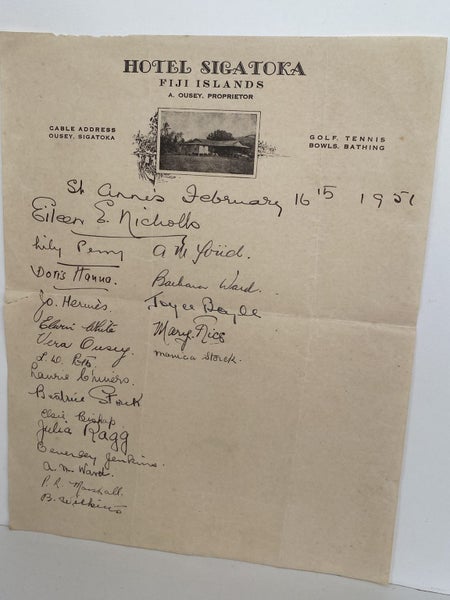 HOTEL SIGATOKA
FIJI ISLANDS
A. OUSEY, PROPRIETOR
CABLE ADDRESS
OUSEY, SIGATOKA
GOLF, TENNIS
BOWLS, BATHING
St Annes February 16 1951
Eileen E. Nicholls
Lily Penny
A M
Doris Hanna.
Barbara Ward.
Jo. Hermes
Joyce Boyle
Elwin White
Mary Rice
Vera Ousey.
Monica Storck.
Laurie
Beatrice Storck
Elsie Bishop
Julia Ragg
Beverley Jenkins.
A. M. Ward.
P. R. Marshall.
B. Wilkins